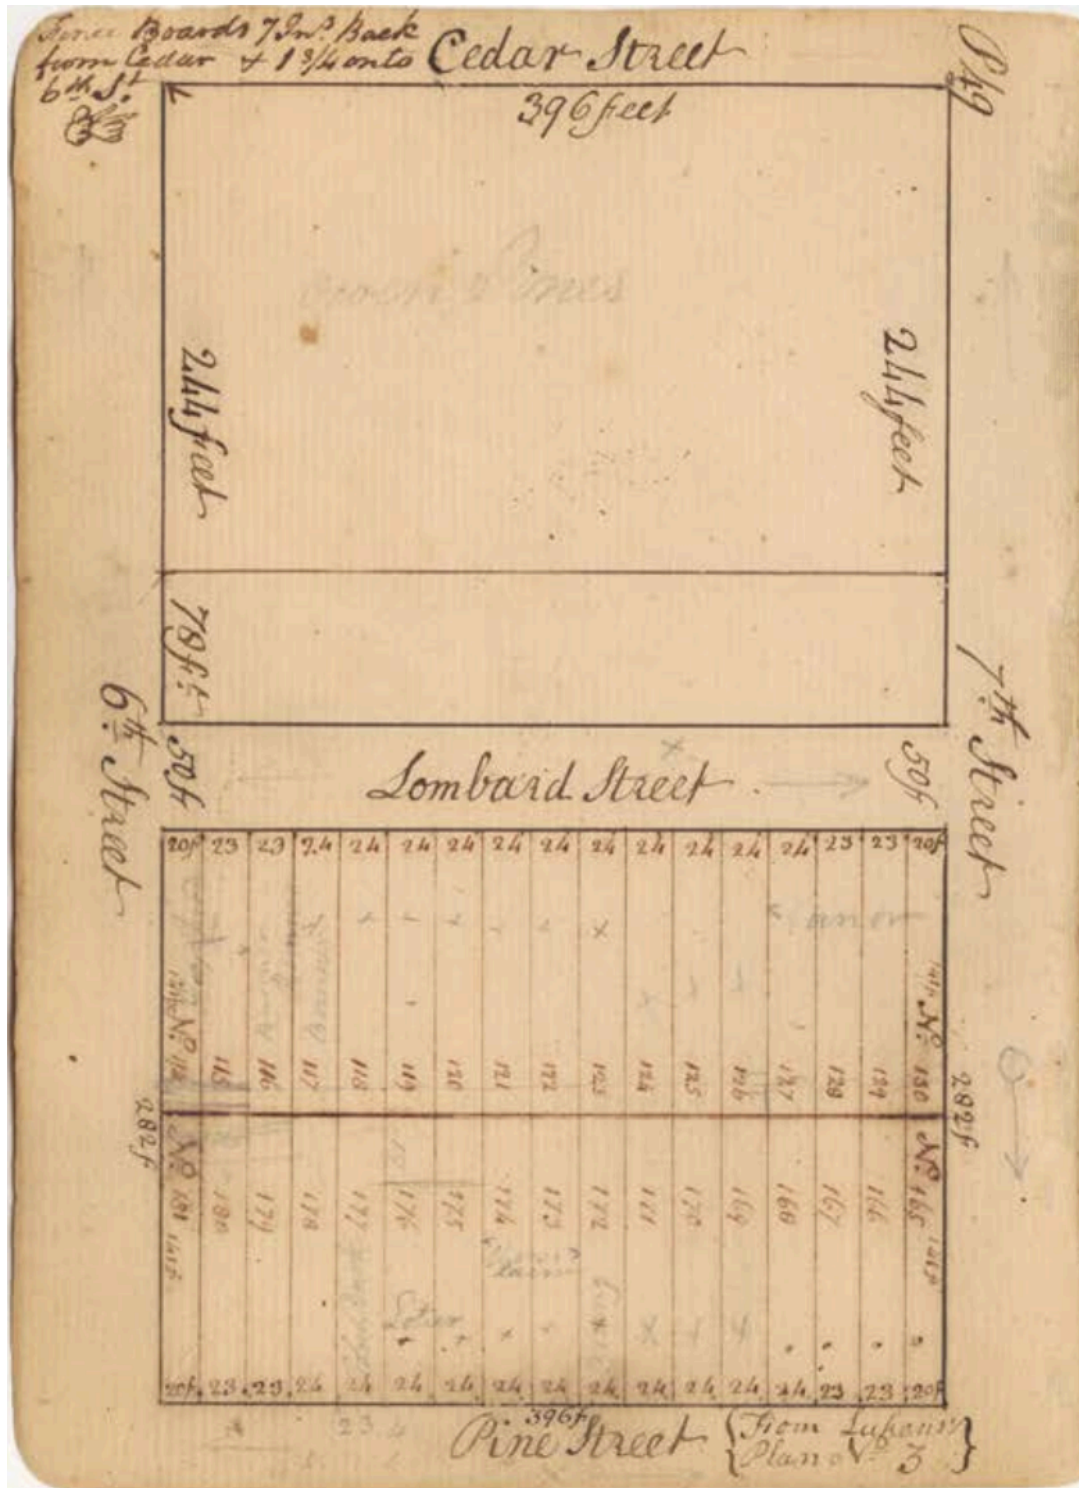 Boards 7 In.s Back
from Cedar + 1 3/4 onto
6th St
Cedar Street
P 49
396 feet
244 feet
244 feet
78 ft
6th Street
7th Street
50 ft
Lombard Street
50 f
20f 23 23 24 24 24 24 24 24 24 24 24 24 24 23 23 20f
No. 115 116 117 118 119 120 121 122 123 124 125 126 127 128 129 No. 130
282 f
282 f
No. 181 180 179 178 177 176 175 174 173 172 171 170 169 168 167 166 No. 165
141 f
20f 23 23 24 24 24 24 24 24 24 24 24 24 24 23 23 20f
396 f
Pine Street
{From
Plan No 3}